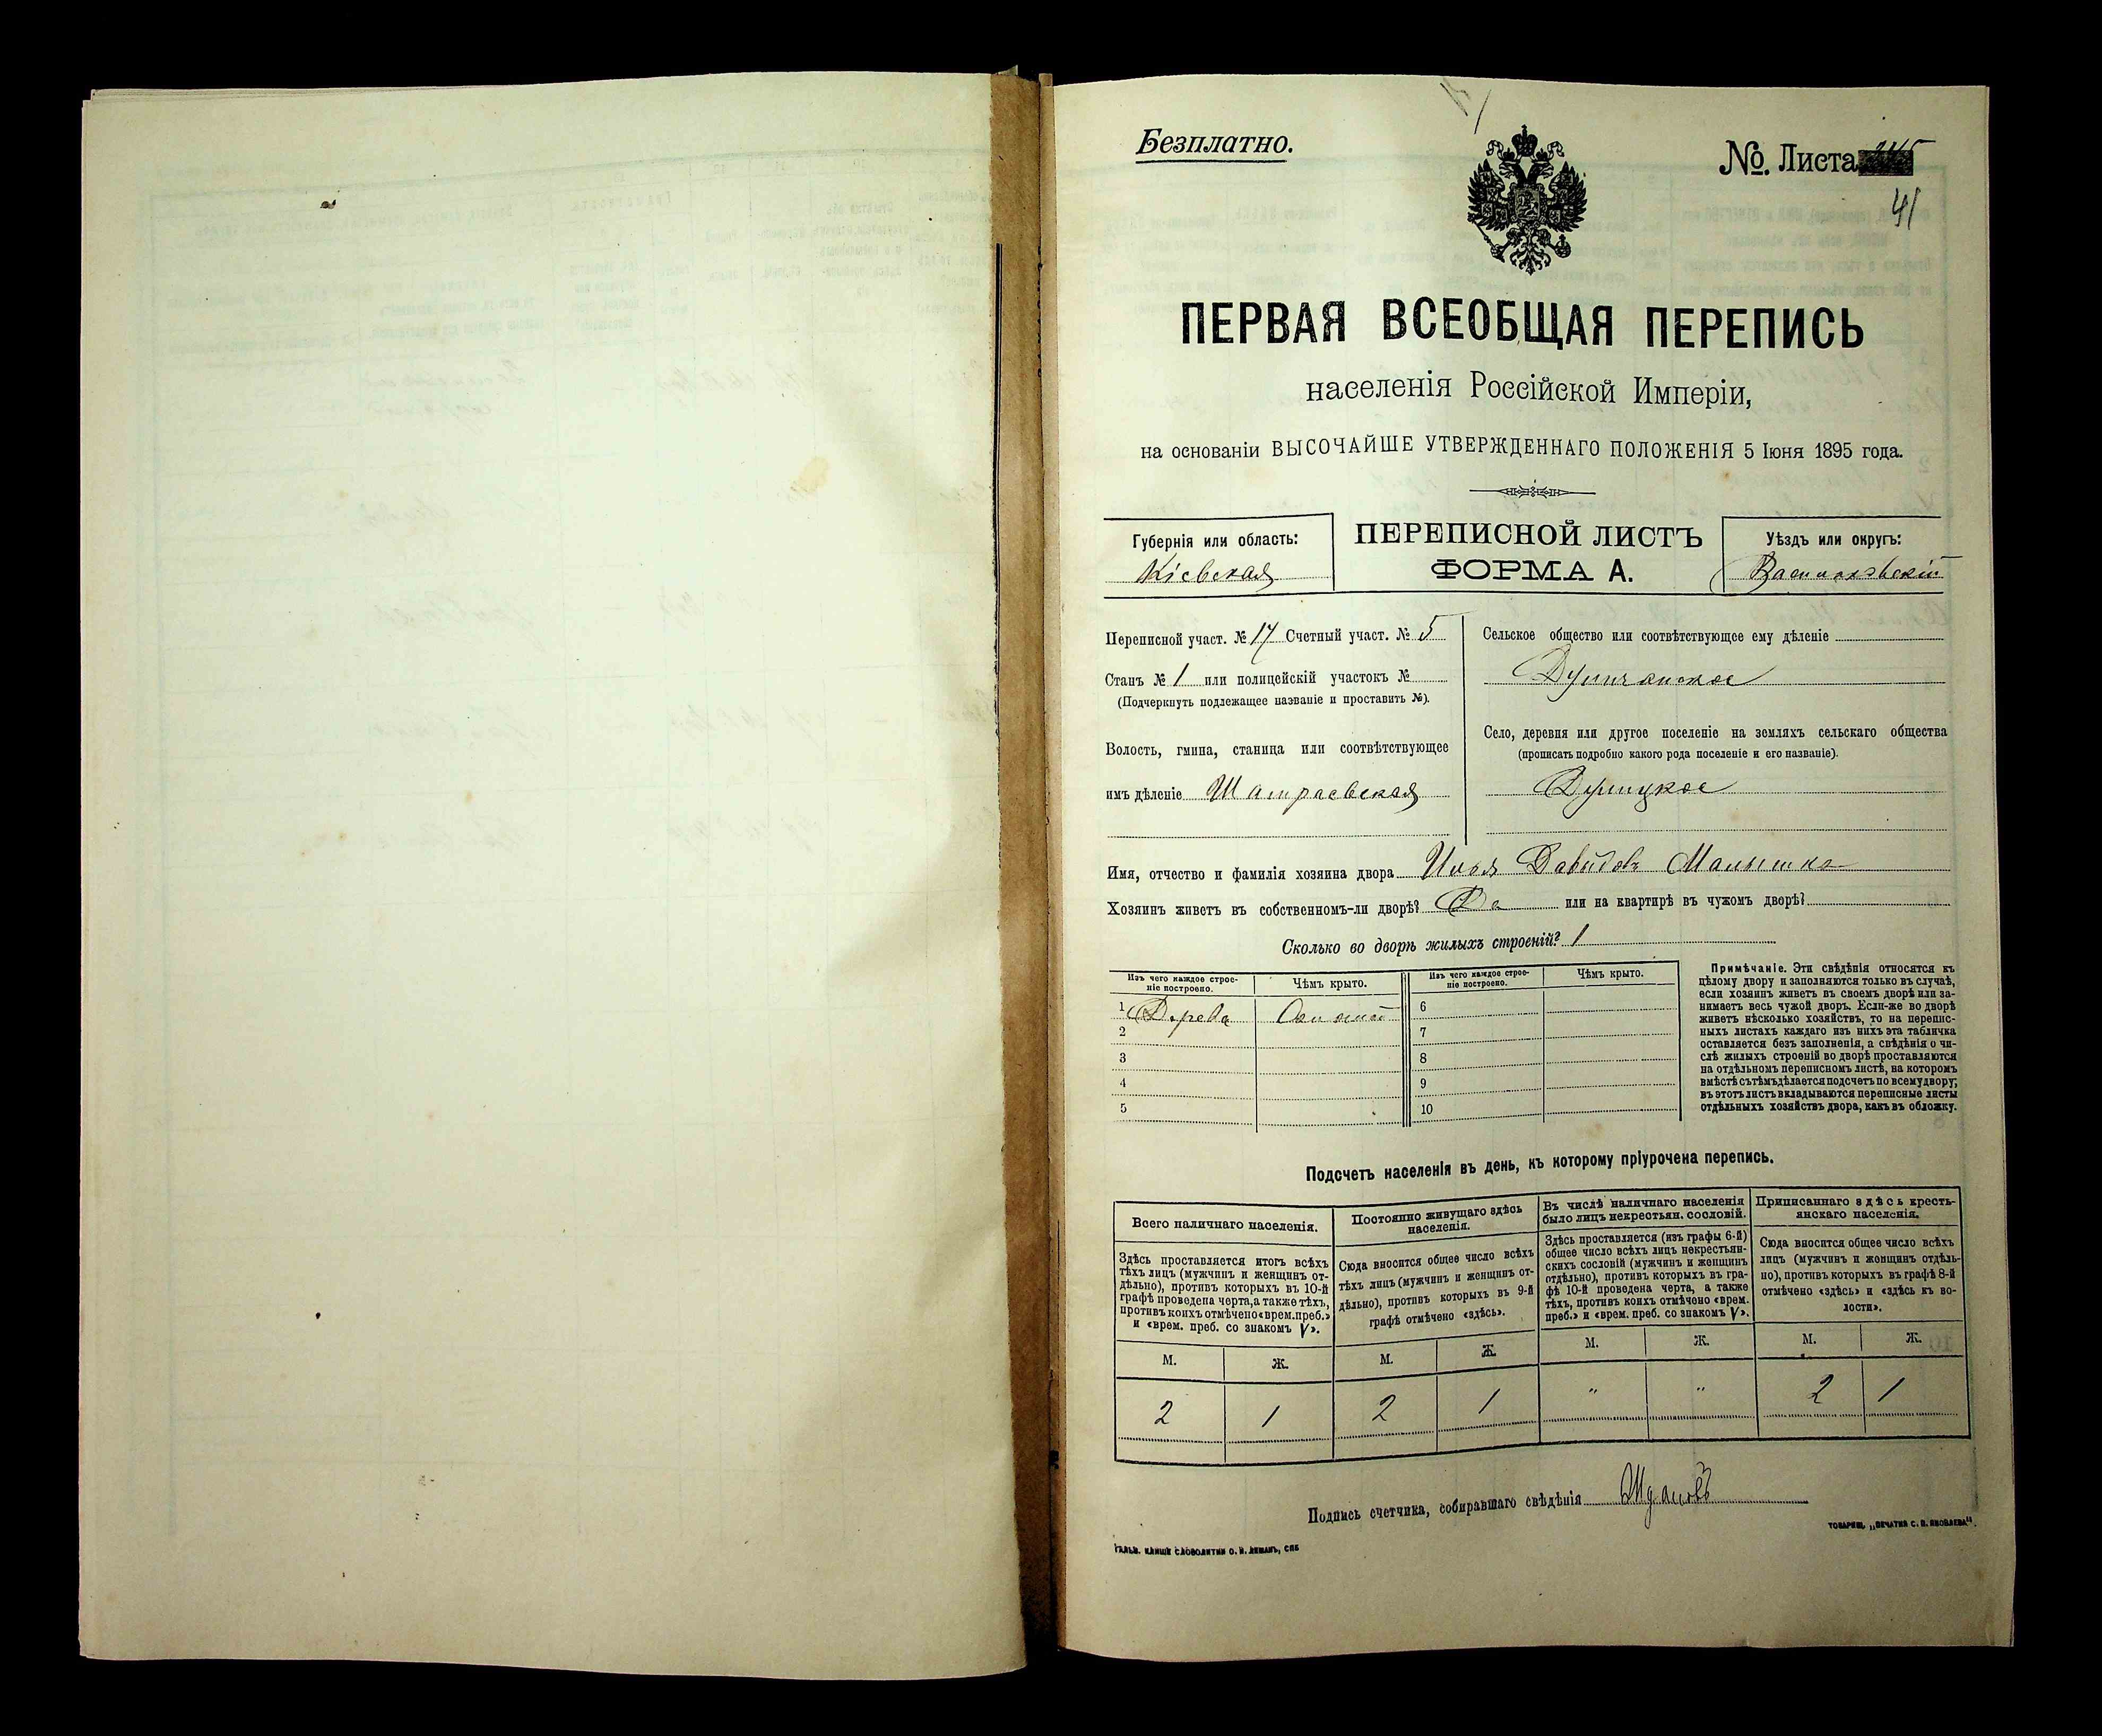 Безплатно.
№. Листа
41
ПЕРВАЯ ВСЕОБЩАЯ ПЕРЕПИСЬ
населенія Россійской Имперіи,
на основаніи ВЫСОЧАЙШЕ УТВЕРЖДЕННАГО ПОЛОЖЕНІЯ 5 Іюня 1895 года.
Губернія или область:
Кіевская
ПЕРЕПИСНОЙ ЛИСТЪ
ФОРМА А.
Уѣздъ или округъ:
Васильковскій
Переписной участ. № 17 Счетный участ. № 5
Станъ № 1 или полицейскій участокъ №
(Подчеркнуть подлежащее названіе и проставить №).
Волость, гмина, станица или соотвѣтствующее
имъ дѣленіе Шамраевская
Сельское общество или соотвѣтствующее ему дѣленіе
Село, деревня или другое поселеніе на земляхъ сельскаго общества
(прописать подробно какого рода поселеніе и его названіе).
Имя, отчество и фамилія хозяина двора Илья Давыдовъ Малышко
Хозяинъ живетъ въ собственномъ-ли дворѣ? Да или на квартирѣ въ чужомъ дворѣ?
Сколько во дворѣ жилыхъ строеній? 1
Изъ чего каждое строе-
ніе построено.
Чѣмъ крыто.
Изъ чего каждое строе-
ніе построено.
Чѣмъ крыто.
1 Дерева Соломой 6
2 7
3 8
4 9
5 10
Примѣчаніе. Эти свѣдѣнія относятся къ
цѣлому двору и заполняются только въ случаѣ,
если хозяинъ живетъ въ своемъ дворѣ или за-
нимаетъ весь чужой дворъ. Если-же во дворѣ
живетъ нѣсколько хозяйствъ, то на перепис-
ныхъ листахъ каждаго изъ нихъ эта табличка
оставляется безъ заполненія, а свѣдѣнія о чи-
слѣ жилыхъ строеній во дворѣ проставляются
на отдѣльномъ переписномъ листѣ, на которомъ
вмѣстѣ съ тѣмъ дѣлается подсчетъ по всему двору;
въ этотъ листъ вкладываются переписные листы
отдѣльныхъ хозяйствъ двора, какъ въ обложку.
Подсчетъ населенія въ день, къ которому пріурочена перепись.
Всего наличнаго населенія.
Здѣсь проставляется итогъ всѣхъ
тѣхъ лицъ (мужчинъ и женщинъ от-
дѣльно), противъ которыхъ въ 10-й
графѣ проведена черта, а также тѣхъ,
противъ коихъ отмѣчено «врем. преб.»
и «врем. преб. со знакомъ V».
Постоянно живущаго здѣсь
населенія.
Сюда вносится общее число всѣхъ
тѣхъ лицъ (мужчинъ и женщинъ от-
дѣльно), противъ которыхъ въ 9-й
графѣ отмѣчено «здѣсь».
Въ числѣ наличнаго населенія
было лицъ некрестьян. сословій.
Здѣсь проставляется (изъ графы 6-й)
общее число всѣхъ лицъ некрестьян-
скихъ сословій (мужчинъ и женщинъ
отдѣльно), противъ которыхъ въ гра-
фѣ 10-й проведена черта, а также
тѣхъ, противъ коихъ отмѣчено «врем.
преб.» и «врем. преб. со знакомъ V».
Приписаннаго здѣсь кресть-
янскаго населенія.
Сюда вносится общее число всѣхъ
лицъ (мужчинъ и женщинъ отдѣль-
но), противъ которыхъ въ графѣ 8-й
отмѣчено «здѣсь» и «здѣсь къ во-
лости».
М. Ж. М. Ж. М. Ж. М. Ж.
2 1 2 1 " " 2 1
Подпись счетчика, собиравшаго свѣдѣнія
ГАЛЬВ. КЛИШЕ СЛОВОЛИТНИ О. И. ЛЕМАНЪ, СПБ
ТОВАРИЩ. „ПЕЧАТНЯ С. П. ЯКОВЛЕВА".